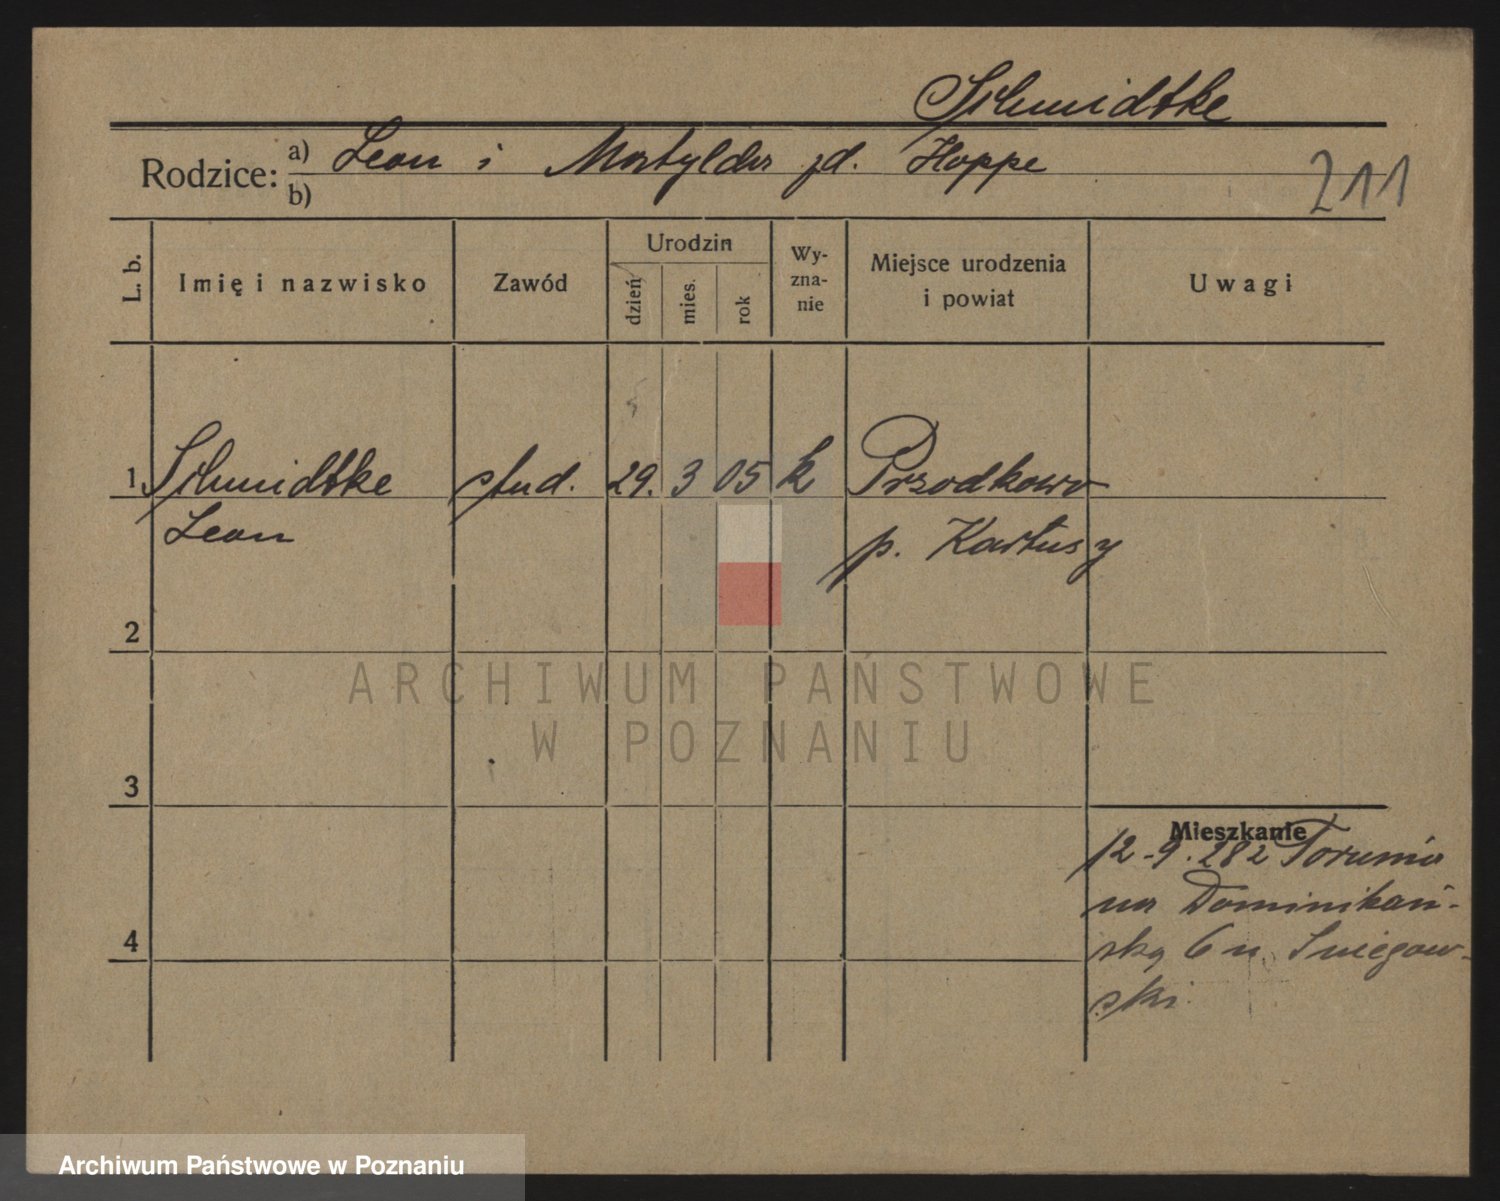 Schmidtke
Rodzice: a) Leon i Matylda zd. Hoppe
b)
211
L. b.
Imię i nazwisko
Zawód
Urodzin
dzień
mies.
rok
Wy-
zna-
nie
Miejsce urodzenia
i powiat
Uwagi
1 Schmidtke stud. 29. 3 05 k Przodkowo
Leon p. Kartusy
2
3
4
Mieszkanie
12-9.28 z Torunia
na Dominikań-
ską 6 u Śniegow-
ski
ARCHIWUM PAŃSTWOWE
W POZNANIU
Archiwum Państwowe w Poznaniu